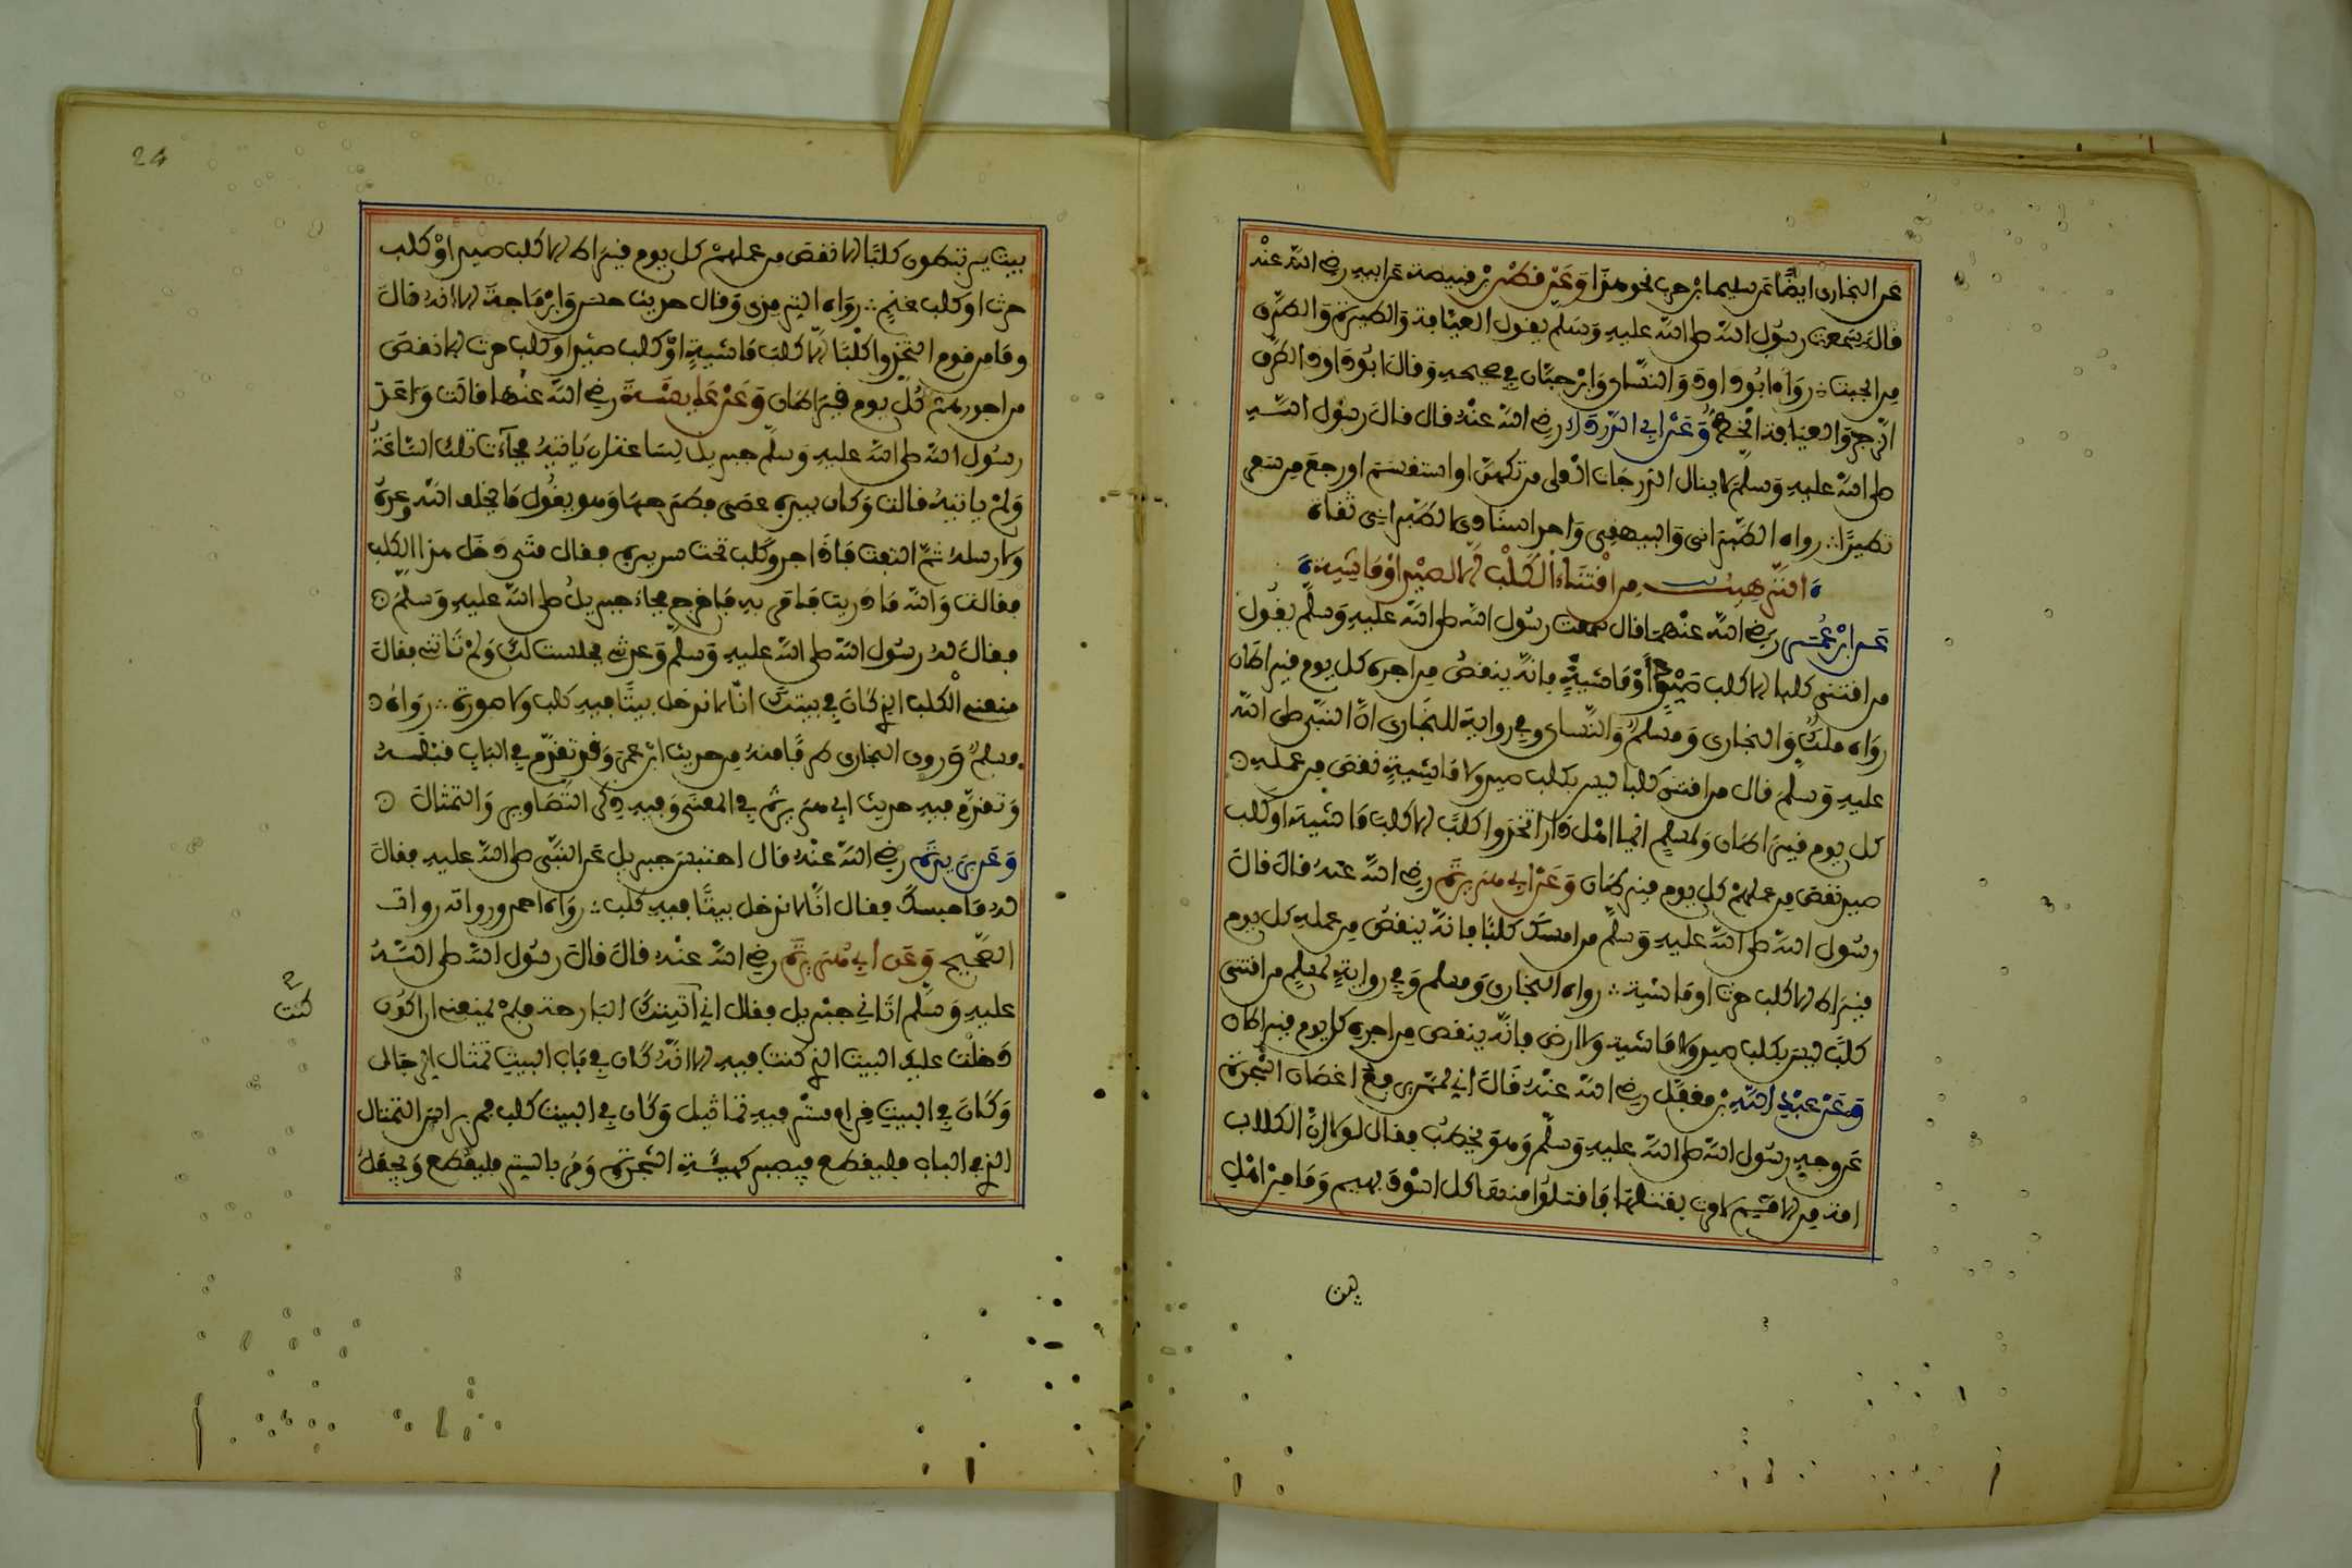 عن البخارى ايضًا عن سليمان بن حرب نحو هذا وَعَنْ قطن بْن قبيصة عن ابيه رضي الله عنه
قال سمعت رسول الله صلى الله عليه وسلم يقول العيافة والطيرة والطرق
من الجبت ؞ رواه ابو داود والنساى وابن حبان في صحيحه وقال ابو داود الطرق
الزجر والعيافة الخط وَعَنْ ابي الدرداء رضي الله عنه قال قال رسول الله
صلى الله عليه وسلم لا ينال الدرجات العلى من تكهن او استقسم او رجع من سفر
تطيرًا ؞ رواه الطبرانى والبيهقى واحد اسنادى الطبرانى ثقاة
الترهيب من اقتناء الكلب الا لصيد او ماشية
عن ابن عُمَر رضي الله عنهما قال سمعت رسول الله صلى الله عليه وسلم يقول
من اقتنى كلبا الا كلب صيد أو ماشية فانه ينقص من اجره كل يوم قيراطان
رواه ملك والبخارى ومسلم والنساى وفي رواية للبخارى ان النبي صلى الله
عليه وسلم قال من اقتنى كلبا ليس بكلب صيد ولا ماشية نقص من عمله
كل يوم قيراطان ولمسلم ايما اهل دار اتخذوا كلبا الا كلب ماشية او كلب
صيد نقص من عملهم كل يوم قيراطان وَعَنْ ابي هريرة رضي الله عنه قال قال
رسول الله صلى الله عليه وسلم من امسك كلبًا فانه ينقص من عمله كل يوم
قيراط الا كلب حرث او ماشية ؞ رواه البخارى ومسلم وفي رواية لمسلم من اقتنى
كلبًا ليس بكلب صيد ولا ماشية ولا ارض فانه ينقص من اجره كل يوم قيراطان
وَعَنْ عبد الله بن مغفل رضي الله عنه قال اني لممن يرفع اغصان الشجرة
عن وجه رسول الله صلى الله عليه وسلم وهو يخطب فقال لولا ان الكلاب
امة من الامم لامرت بقتلها فاقتلوا منها كل اسود بهيم وما من اهل
بيت
24
بيت يرتبطون كلبًا الا نقص من عملهم كل يوم قيراط الا كلب صيد او كلب
حرث او كلب غنم ؞ رواه الترمذى وقال حديث حسن وابن ماجة الا انه قال
وما من قوم اتخذوا كلبًا الا كلب ماشية او كلب صيد او كلب حرث الا نقص
من اجورهم كل يوم قيراطان وَعَنْ عايشة رضي الله عنها قالت واعد
رسول الله صلى الله عليه وسلم جبريل يساعة ان ياتيه فجآءت تلك الساعة
ولم ياتيه قالت وكان بيده عصى فطرحها وهو يقول ما يخلف الله وعده
ولا رسله ثم التفت فاذا جرو كلب تحت سريره فقال متى دخل هذا الكلب
فقالت والله ما دريت فامر به فاخرج فجاء جبريل صلى الله عليه وسلم
فقال له رسول الله صلى الله عليه وسلم وعدتني فجلست لك ولم تاتني فقال
منعني الكلب الذي كان في بيتك انا لا ندخل بيتًا فيه كلب ولا صورة ؞ رواه
مسلم وروى البخارى طرفًا منه من حديث ابن عمر وقد تقدم في الباب قبله
وتقدم فيه حديث ابي هريرة في المعنى وفيه ذكر التصاوير والتمثال
وَعَن بريدة رضي الله عنه قال احتبس جبريل عن النبي صلى الله عليه فقال
له ما حبسك فقال انا لا ندخل بيتًا فيه كلب ؞ رواه احمد ورواته رواة
الصحيح وَعَن أبي هريرة رضي الله عنه قال قال رسول الله صلى الله
عليه وسلم اتاني جبريل فقال اني اتيتك البارحة فلم يمنعني ان اكون
دخلت عليك البيت الذي كنت فيه الا انه كان في باب البيت تمثال الرجال
وكان في البيت قرام ستر فيه تماثيل وكان في البيت كلب فمر براس التمثال
الذي في الباب فليقطع فيصير كهيئة الشجرة ومر بالستر فليقطع ويجعل
كنت